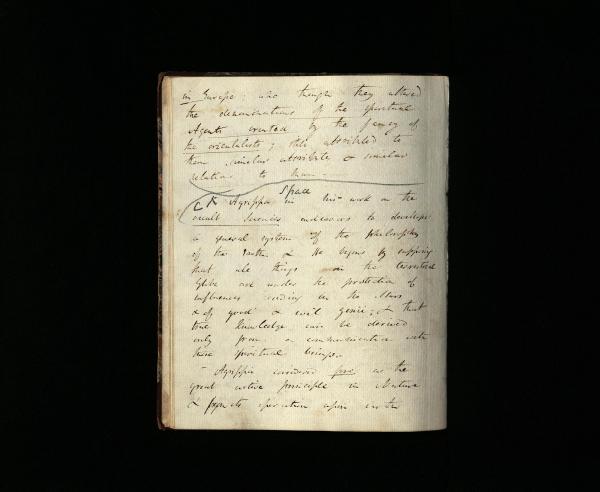 in Europe; who though they altered
the demonstrations of the spiritual
Agents created by the fancy of
the orientalists; still attributed to
them similar attributes & similar
relations to man.
Space
Agrippa in his work on the
occult Sciences endeavours to develope
a general system of the Philosophy
of the Earth & He begins by supposing
that all things in the terrestrial
Globe are under the protection of
influences residing in the Stars
& of good & evil genii; & that
true knowledge can be derived
only from a communication with
these spiritual beings.
Agrippa considered fire as the
great active principle in Nature
& from its operation upon earth